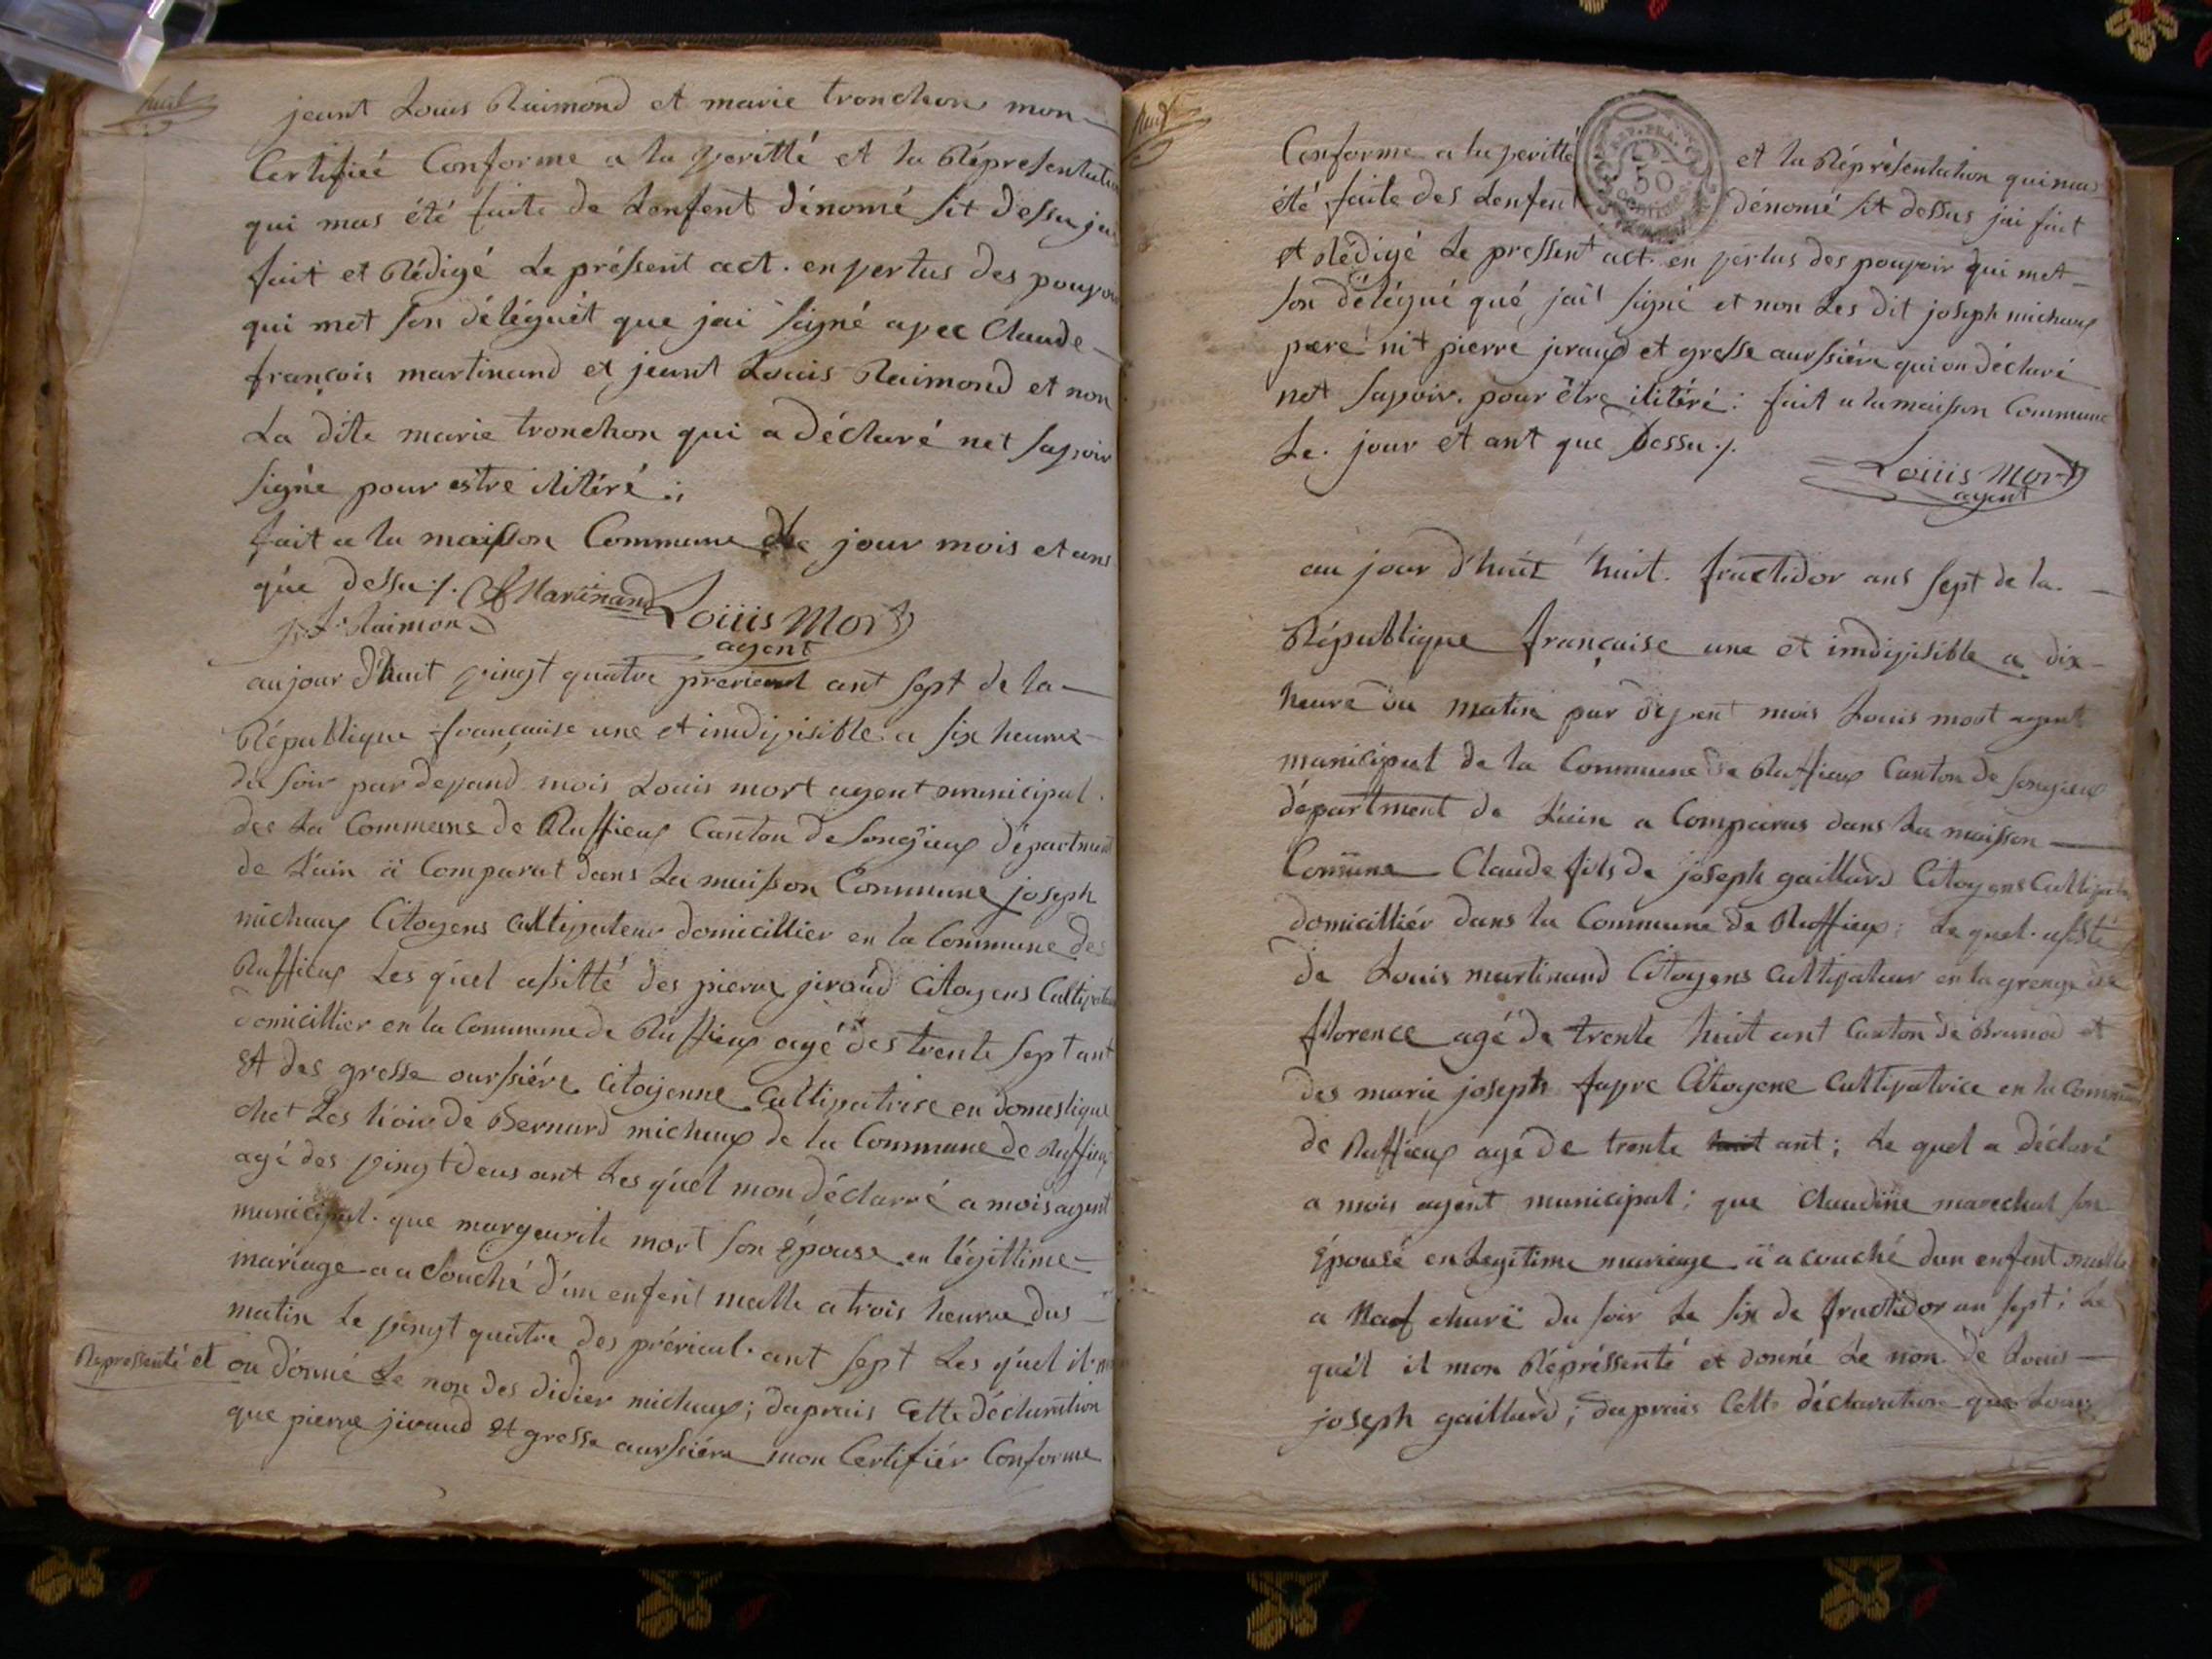 huit
jeant Louis Raimond et marie tronchon mon
Certifieé Conforme a la veritté et la Répresentation
qui mas été faite de Lenfent dénomé sit dessu jai
fait et Rédigé Le présent act. en vertus des pouvoir
qui met son déléguét que jai signé avec Claude
françois martinand et jeant Louis Raimond et non
La dite marie tronchon qui a déclaré net savoir
signé pour estre ilitéré
fait a la maison Commune Le jour mois et ans
que dessu /. Martinand Louis Mort
J L Raimond agent
au jour d'huit vingt quatre prérieal ant sept de la
République française une et indivisible a six heurre
du soir par devand mois Louis mort agent municipal
des La Commune de Ruffieux Canton de Songieux départment
de L'ain a Comparut dans La maison Commune joseph
michaux Citoyens Cultivateur domicillier en la Commune des
Ruffieux Les quel assitté des pierre jiraud Citoyens Cultivateur
domicillier en la Commune de Ruffieux agé des trente sept ant
Et des gresse oursiére Citoyenne Cultivatrise en domestique
chet Les hoir de Bernard michaux de la Commune de Ruffieux
agé des vingt deus ant Les quel mon déclarré a mois agent
municipal. que margeurite mort son épouse en légittime
mariage a acouché d'un enfent malle a trois heurre dus
matin Le vingt quatre des prérieal. ant sept Les quel il m
Representé et ou donné Le non des didier michaux; daprais Cette déclaration
que pierre jiraud Et gresse aursiére mon Certifiér Conforme
neuf
Conforme a la veritté et la Réprésentation qui mas
REP. FRA. 50 Centimes
été faite des Lenfent dénomé sit dessus jai fait
et Rédigé Le pressent act. en vertus des pouvoir qui met
son délégué qué jait signé et non Les dit joseph michaux
pere nit pierre jiraud et gresse aursiére qui on déclaré
net savoir. pour être ilitéré: fait a la maison Commune
Le. jour et ant que dessu /.
Louis Mort
agent
au jour d'huit huit. fructidor ans sept de la
République française une et indivisible a dix
heure du matin par devent mois Louis mort agent
municipal de la Commune de Ruffieux Canton de songieux
départment de L'ain a Comparus dans La maison
Commune Claude fils de joseph gaillard Citoyens Cultivateur
domicilliér dans la Commune de Ruffieux: Le quel. assité
de Louis martinand Citoyens Cultivateur en la grenge de
florence agé de trente huit ant Canton de Brenod et
des marie joseph favre Citoyene Cultivatrice en la Commune
de Ruffieux agé de trente huit ant; Le quel a déclaré
a mois agent municipal; que Claudine marechal son
Épousé en Legitime mariage a acouché dun enfent malle
a Neuf du soir Le six de fructidor an sept; Le
quél il mon Réprésenté et donné Le non de Louis
joseph gaillard; daprais Cette déclaration que Louis